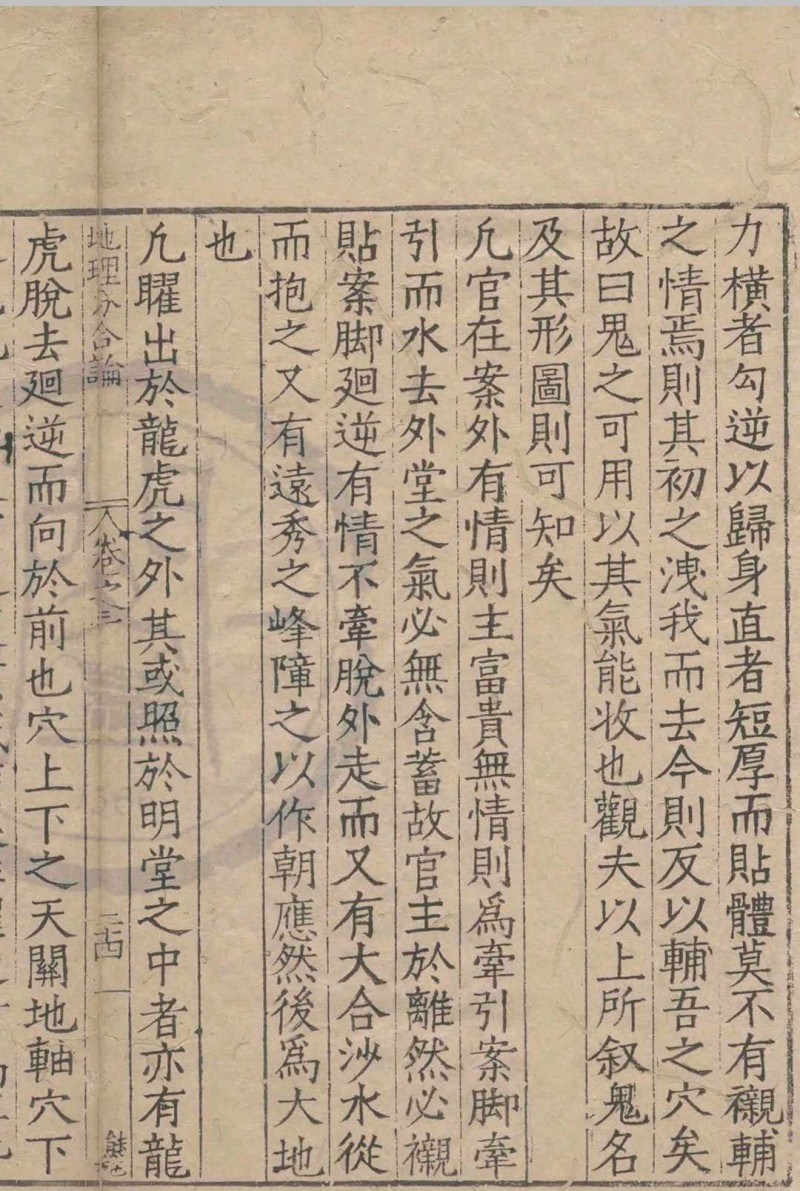 力橫者勾逆以歸身直者短厚而貼體莫不有襯輔
之情焉則其初之洩我而去今則反以輔吾之穴矣
故曰鬼之可用以其氣能收也觀夫以上所叙鬼名
及其形圖則可知矣
凢官在案外有情則主富貴無情則爲牽引案脚牽
引而水去外堂之氣必無含蓄故官主於離然必襯
貼案脚廻逆有情不牽脫外走而又有大合沙水從
而抱之又有遠秀之峰障之以作朝應然後爲大地
也
凢曜出於龍虎之外其或照於明堂之中者亦有龍
地理分合論 卷之三 二十四
虎脫去廻逆而向於前也穴上下之天關地軸穴下